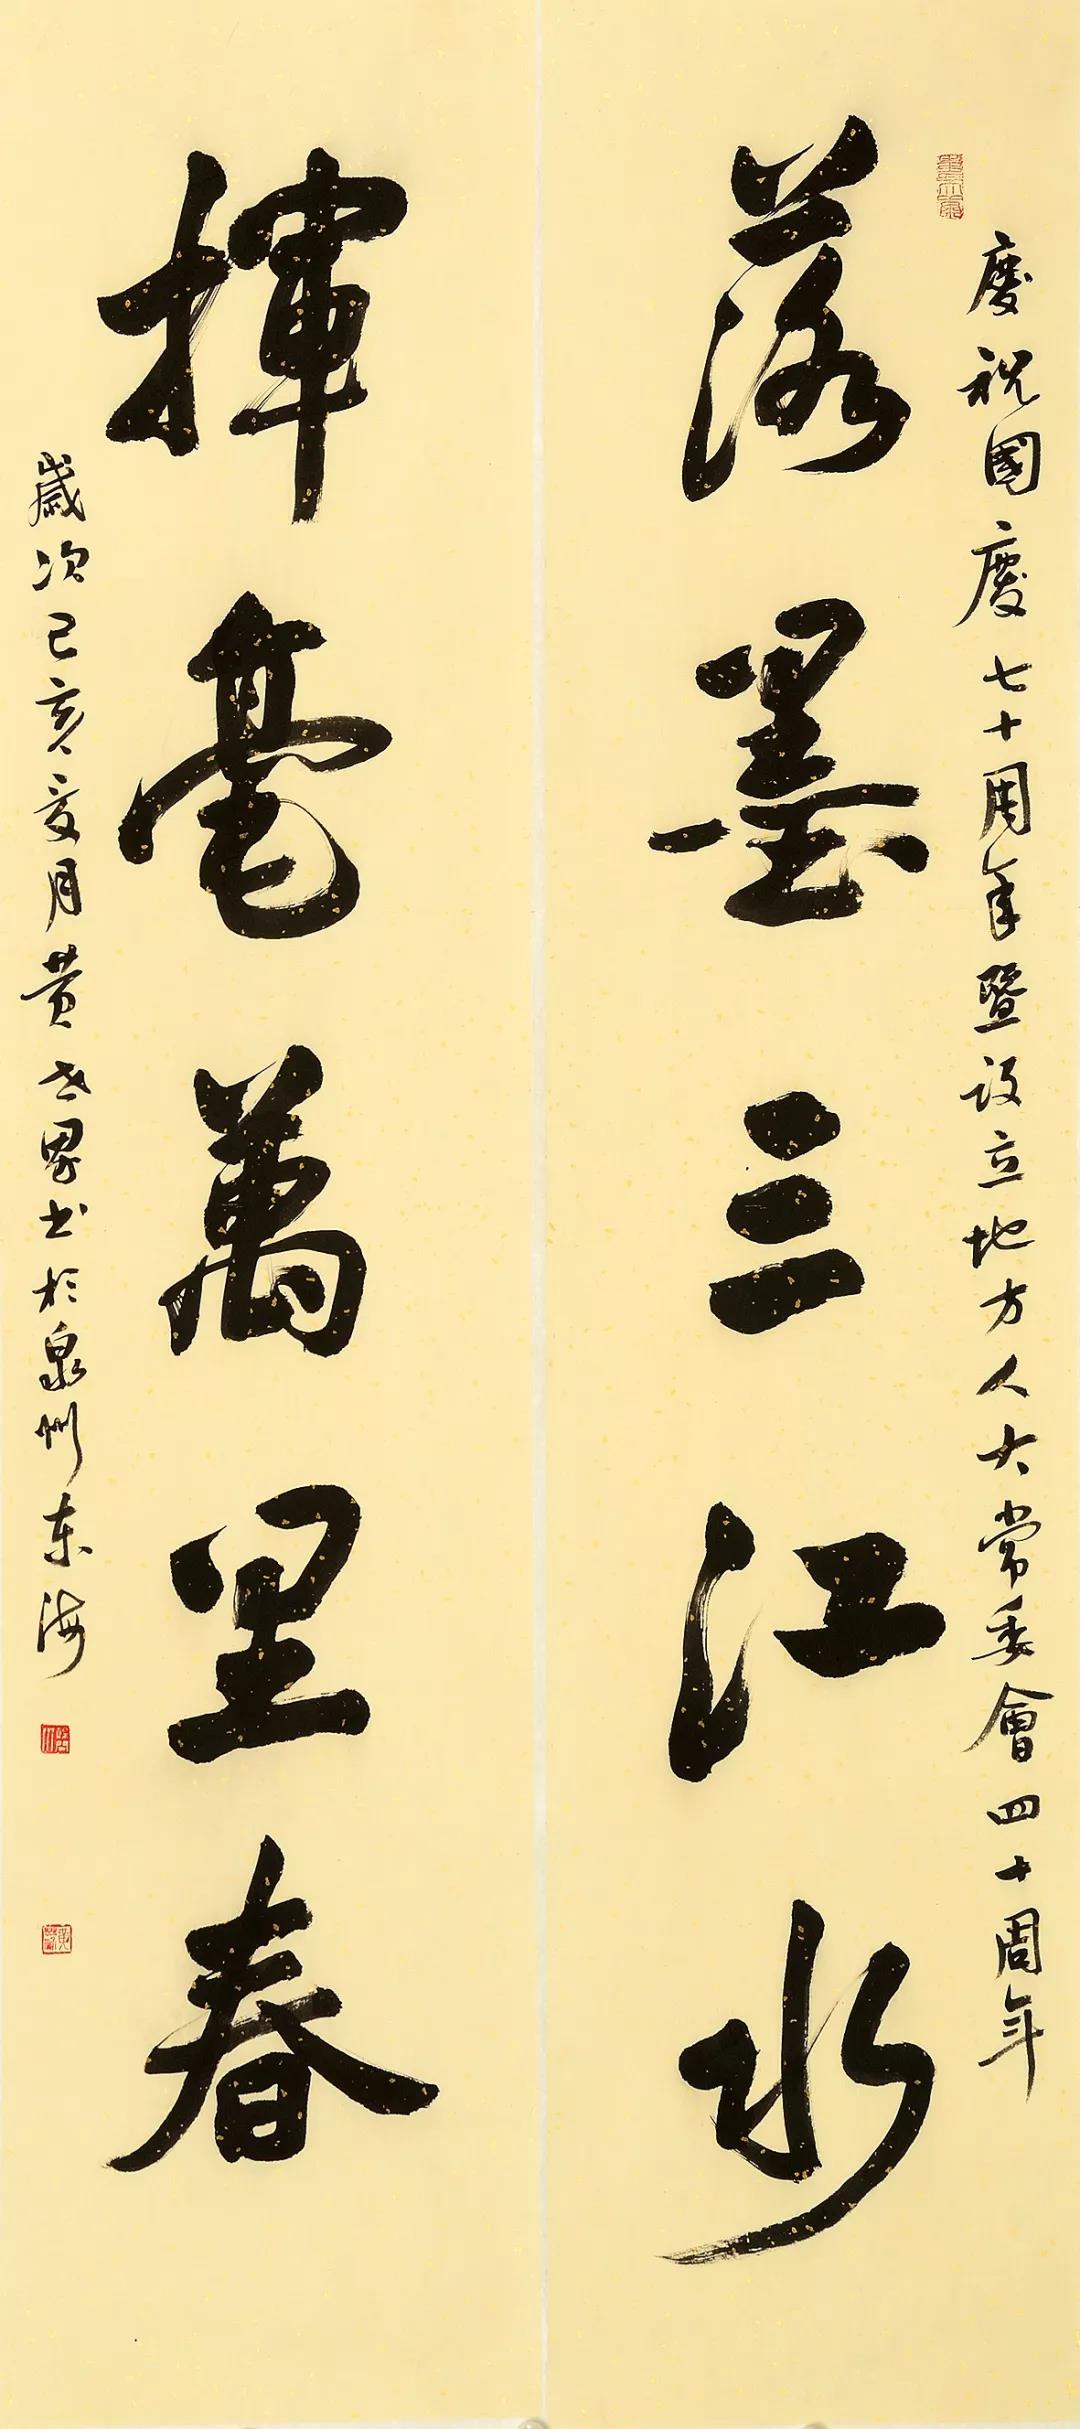 慶祝國慶七十周年暨设立地方人大常委會四十周年
落墨三江水
揮毫萬里春
歲次己亥夏月黄世界书於泉州东海